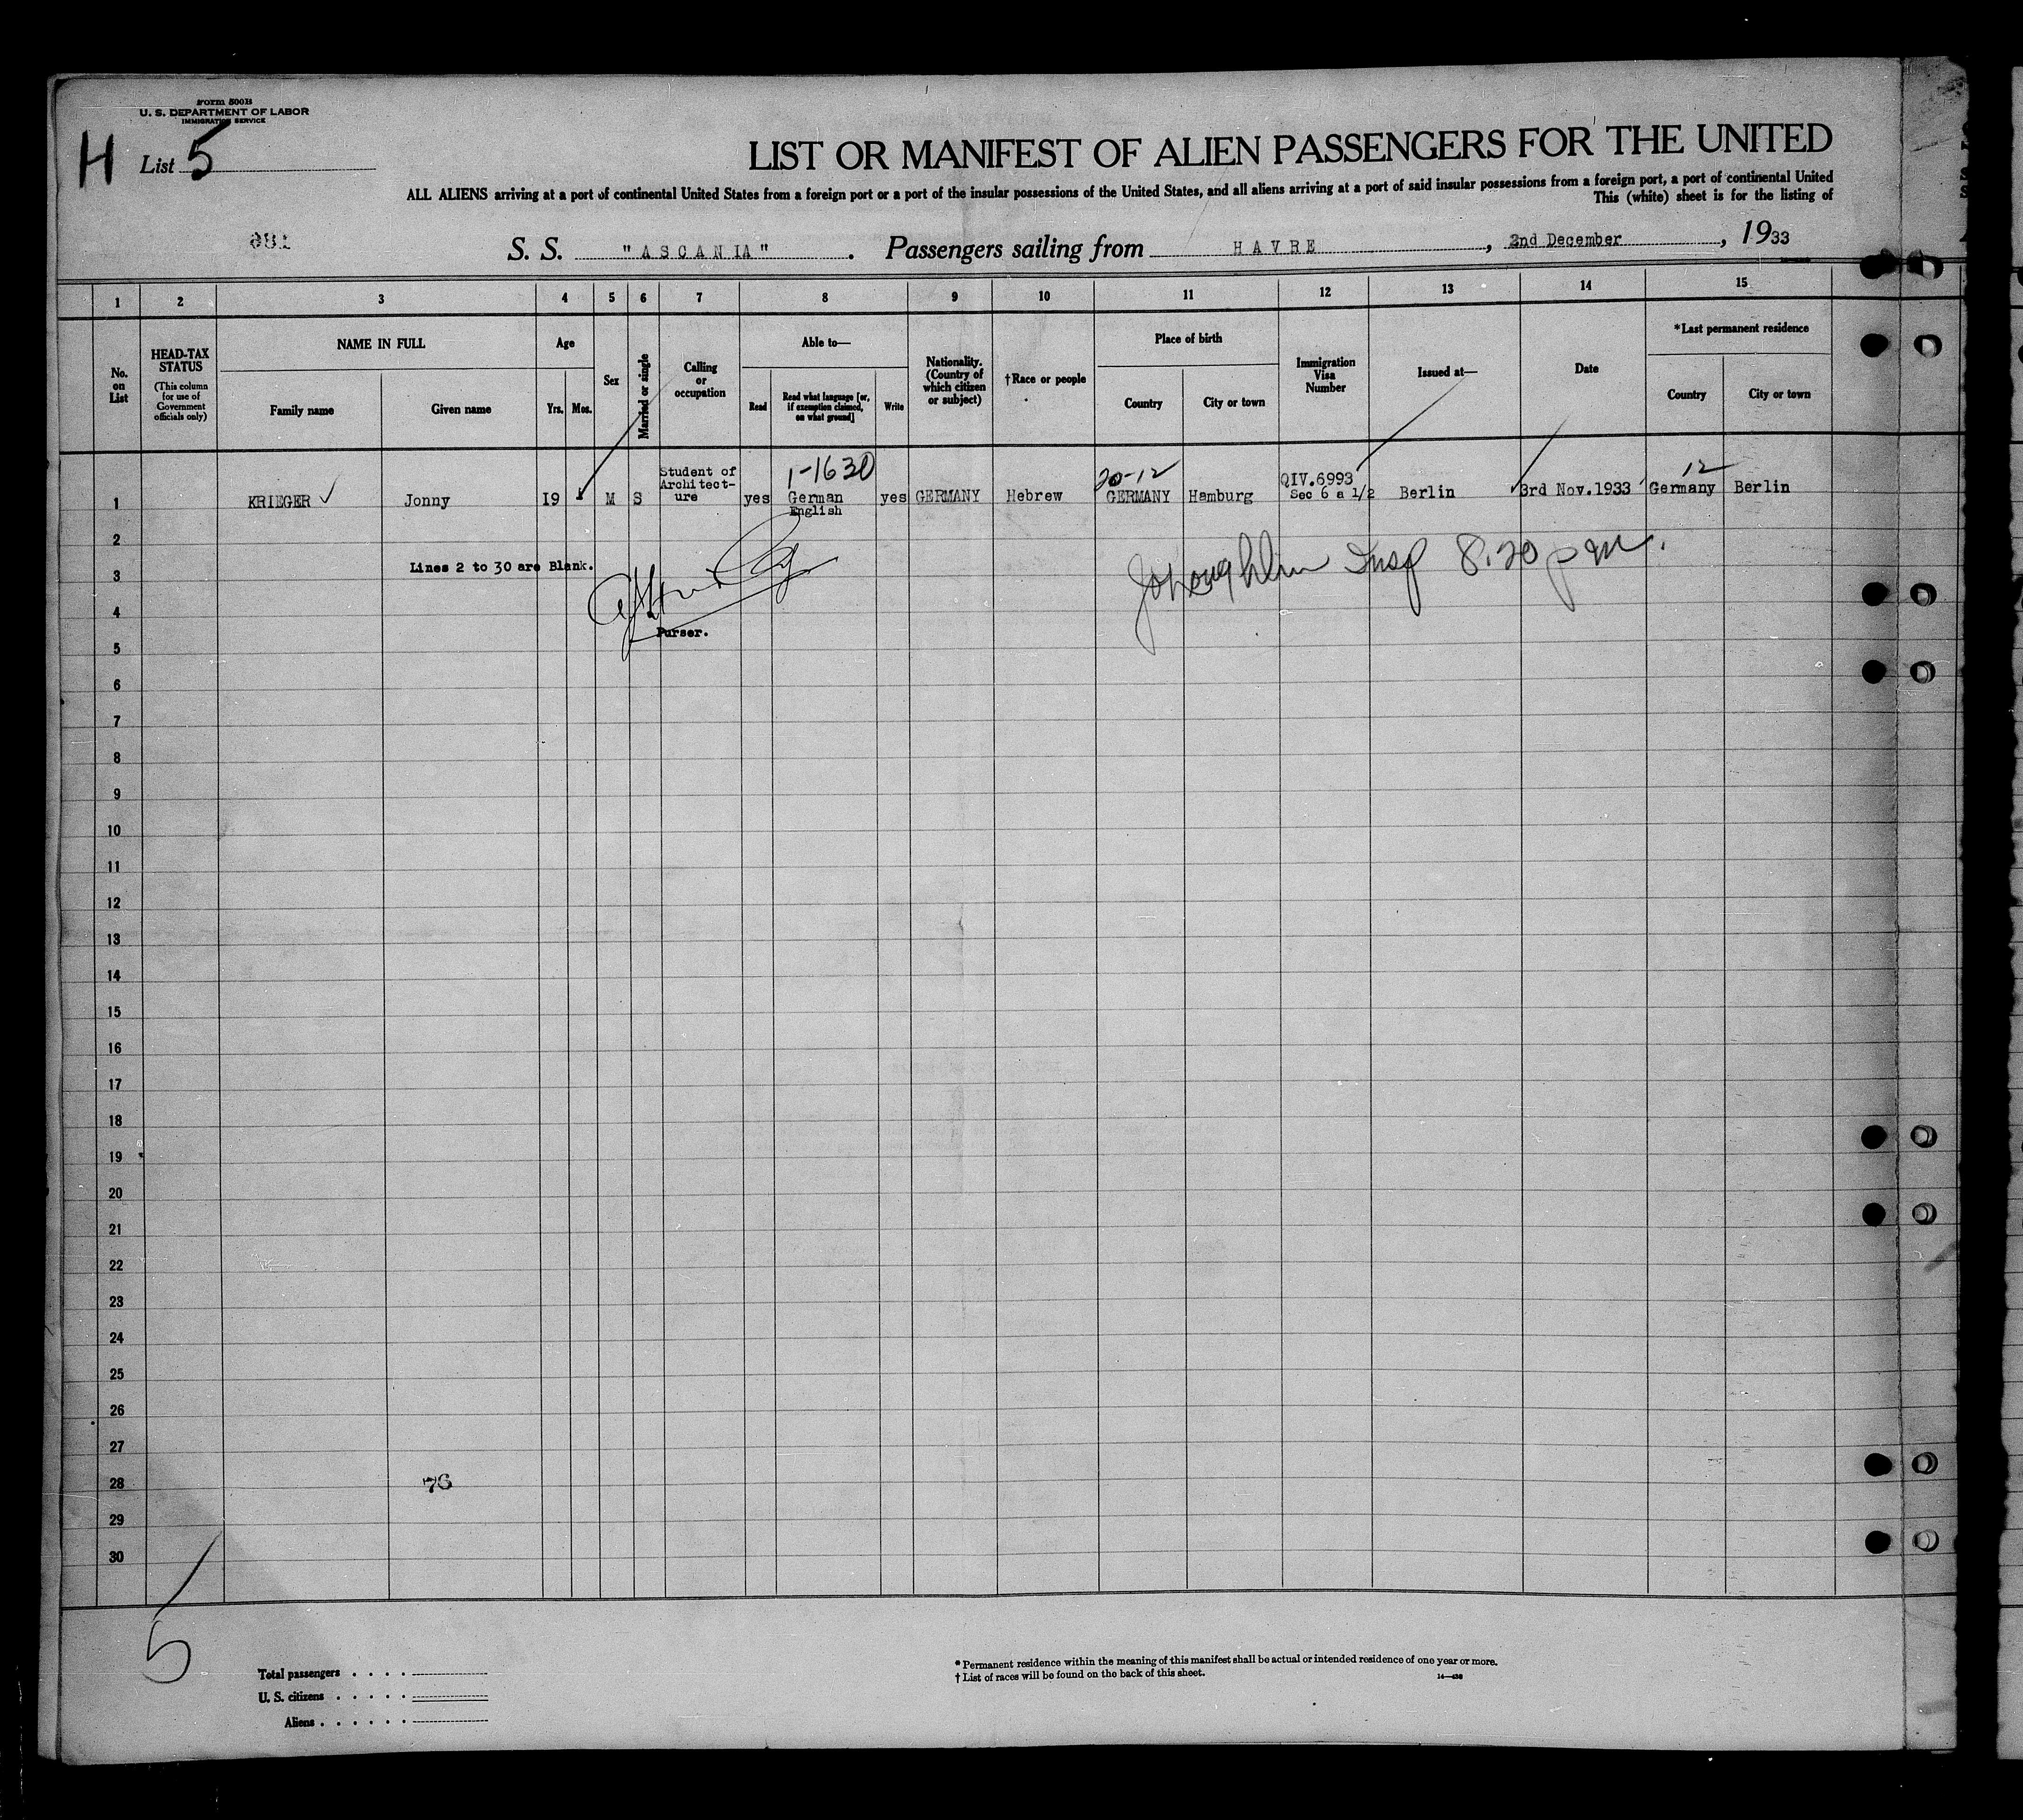 Form 500B
U. S. DEPARTMENT OF LABOR
IMMIGRATION SERVICE
H List 5
LIST OR MANIFEST OF ALIEN PASSENGERS FOR THE UNITED
ALL ALIENS arriving at a port of continental United States from a foreign port or a port of the insular possessions of the United States, and all aliens arriving at a port of said insular possessions from a foreign port, a port of continental United
This (white) sheet is for the listing of
S. S. "ASCANIA". Passengers sailing from HAVRE, 2nd December, 1933
1 2 3 4 5 6 7 8 9 10 11 12 13 14 15
No. on List
HEAD-TAX STATUS
(This column for use of Government officials only)
NAME IN FULL
Family name Given name
Age
Yrs. Mos.
Sex
Married or single
Calling or occupation
Able to—
Read
Read what language [or, if exemption claimed, on what ground]
Write
Nationality. (Country of which citizen or subject)
†Race or people
Place of birth
Country City or town
Immigration Visa Number
Issued at—
Date
*Last permanent residence
Country City or town
1-1630 20-12 12
1 KRIEGER Jonny 19 M S Student of Architecture yes German English yes GERMANY Hebrew GERMANY Hamburg QIV.6993 Sec 6 a 1/2 Berlin 3rd Nov.1933 Germany Berlin
2
Lines 2 to 30 are Blank.
Insp 8.20 pm.
3
4
Purser.
5
6
7
8
9
10
11
12
13
14
15
16
17
18
19
20
21
22
23
24
25
26
27
28 76
29
30
5
Total passengers . . . .
U. S. citizens . . . . .
Aliens . . . . . .
* Permanent residence within the meaning of this manifest shall be actual or intended residence of one year or more.
† List of races will be found on the back of this sheet.